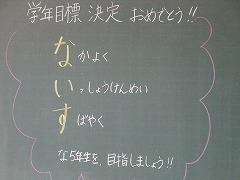 学年目標 決定 おめでとう!!
なかよく
いっしょうけんめい
すばやく
な5年生を、目指しましょう!!